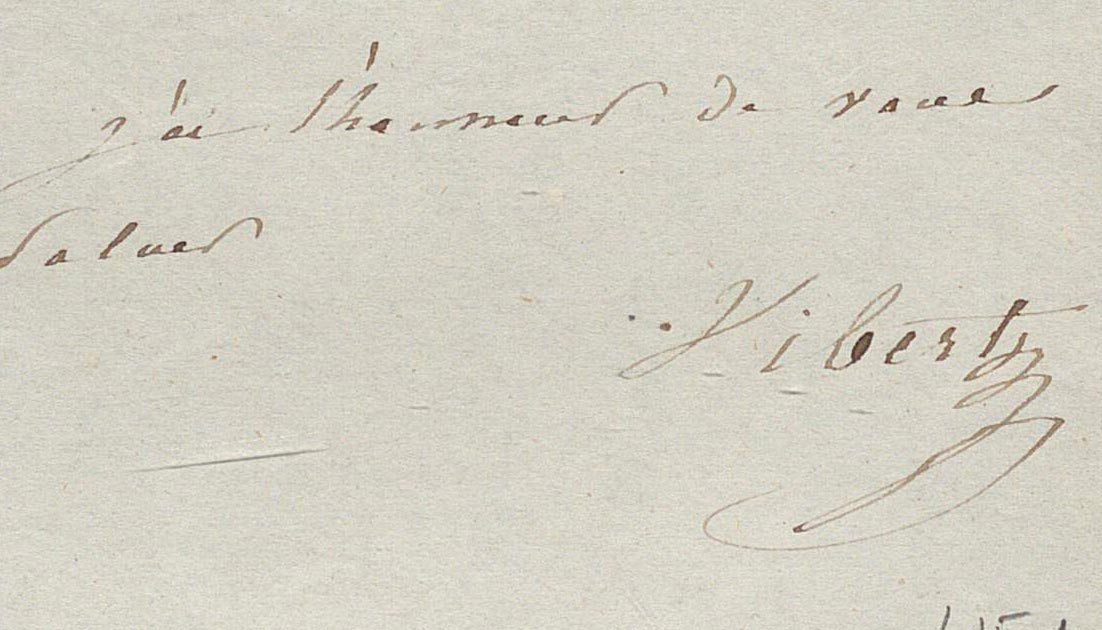 j'ai l'honneur de vous
saluer
Vibert